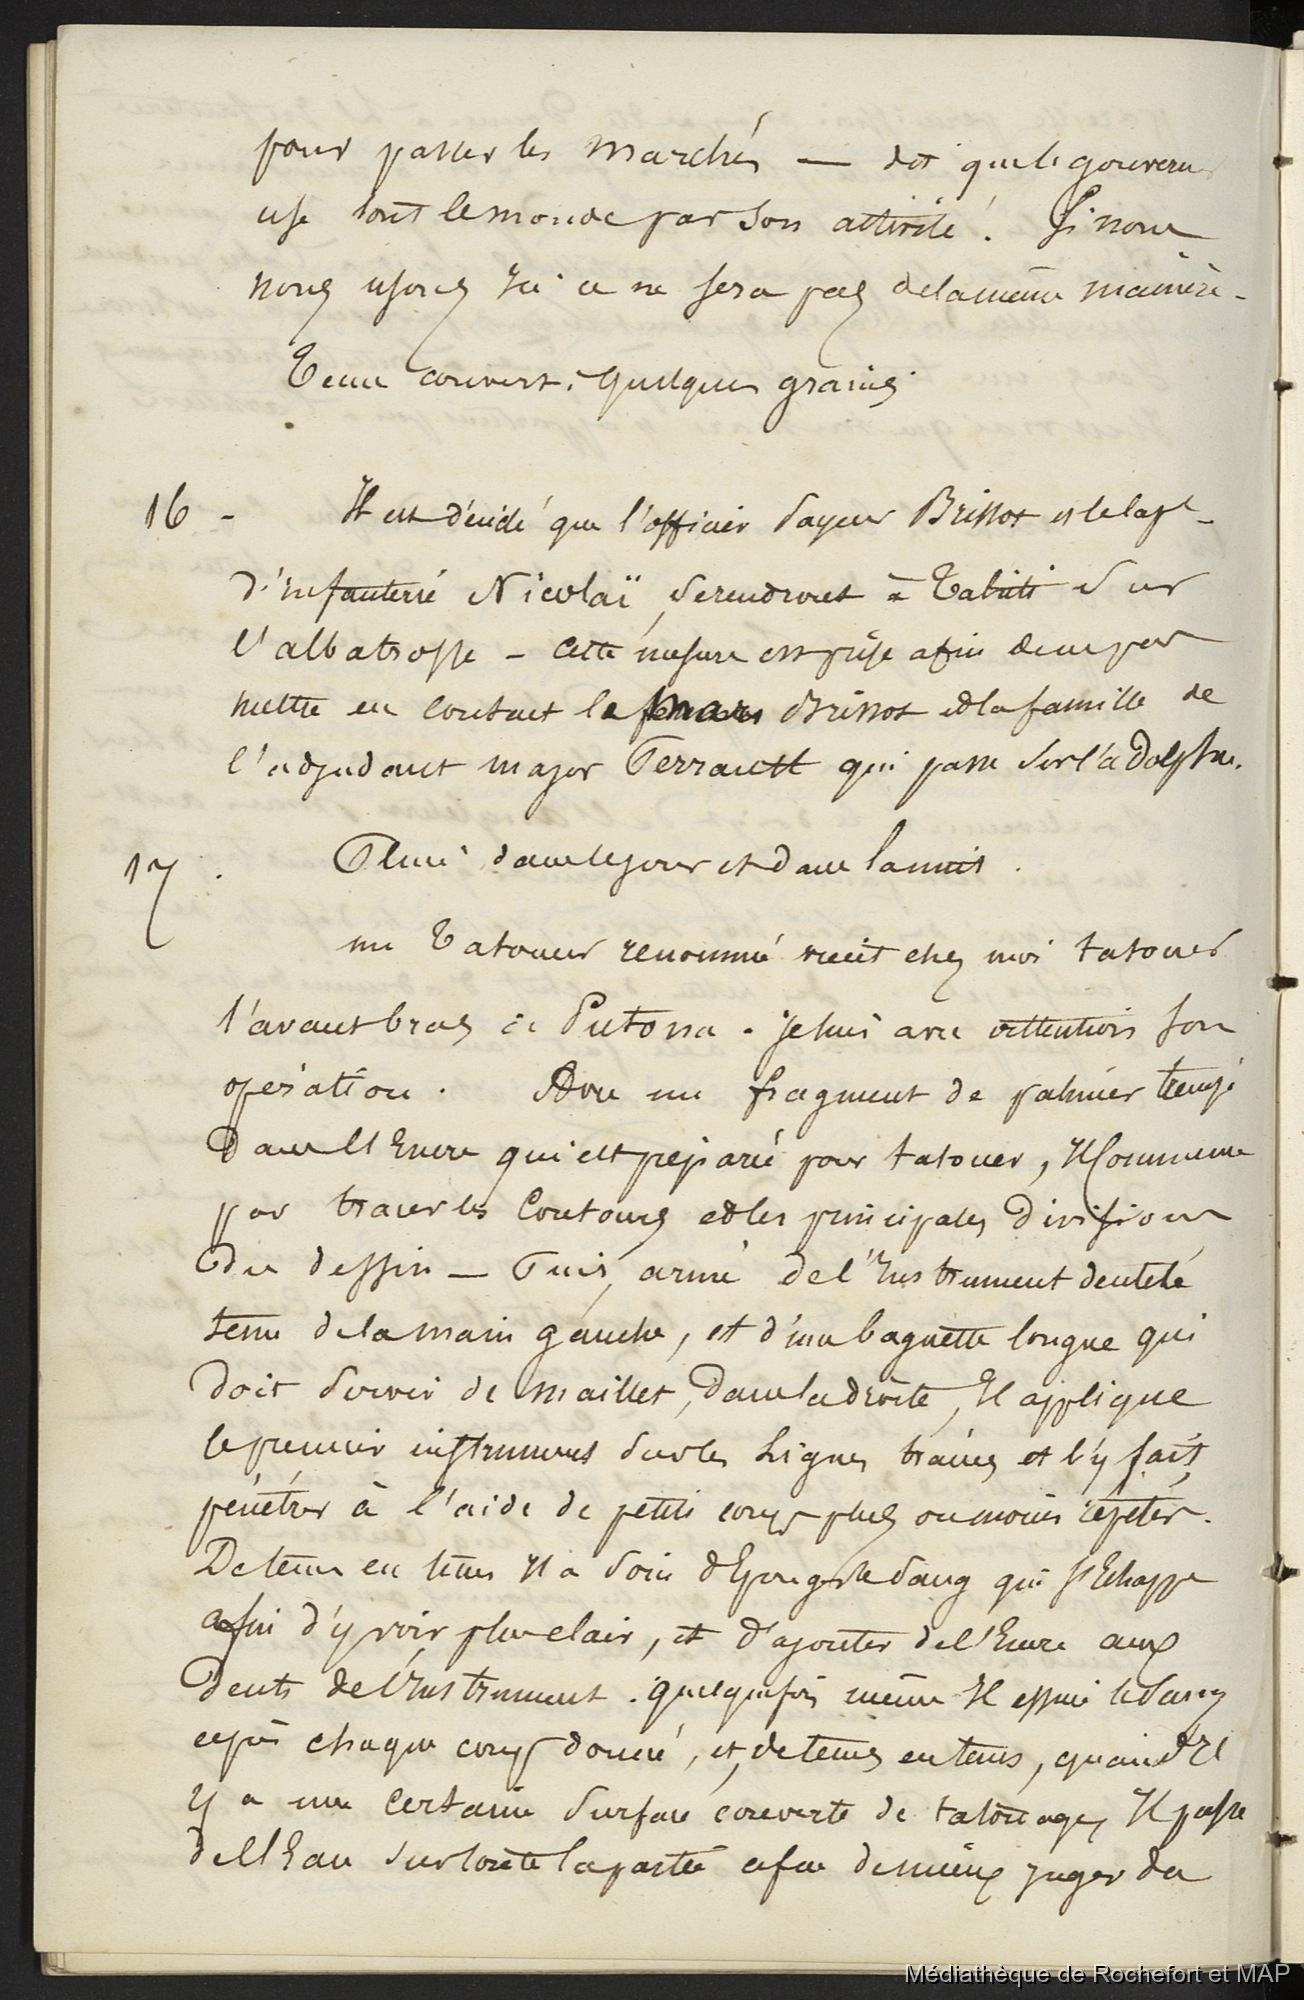 pour passer les marchés — dit que le gouverneur
use tout le monde par son activité. Si nous
nous usons ici ce ne sera pas de la même manière -
Tems couvert. quelques grains.
16 - Il est décidé que l'officier payeur Brissot et le Capt
d'infanterie Nicolaï se rendront à Tahiti sur
l'albatrosse - cette mesure est prise afin de ne pas
mettre en contact la Brissot et la famille de
l'adjudant major Perrault qui passe sur l'adolphe.
17 . Pluie dans le jour et dans la nuit.
un Tatoueur renommé vient chez moi tatouer
l'avant bras de Putona. je suis avec attention son
opération. Avec un fragment de palmier trempé
dans l'Encre qui est préparée pour tatouer, Il commence
par tracer les Contours et les principales divisions
du dessin — Puis, armé de l'Instrument dentelé
tenu de la main gauche, et d'une baguette longue qui
doit servir de maillet, dans la droite, Il applique
le premier instrument sur les Lignes tracées et l'y fait
pénétrer à l'aide de petits coups plus ou moins répétés.
De tems en tems Il a soin d'Eponger le sang qui s'Echappe
afin d'y voir plus clair, et d'ajouter de l'Encre aux
dents de l'Instrument. quelquefois même Il essuie le sang
après chaque coup donné, et, de tems en tems, quand Il
y a une certaine surface couverte de tatouages, Il passe
de l'Eau sur toute la partie afin de mieux juger du
Médiathèque de Rochefort et MAP